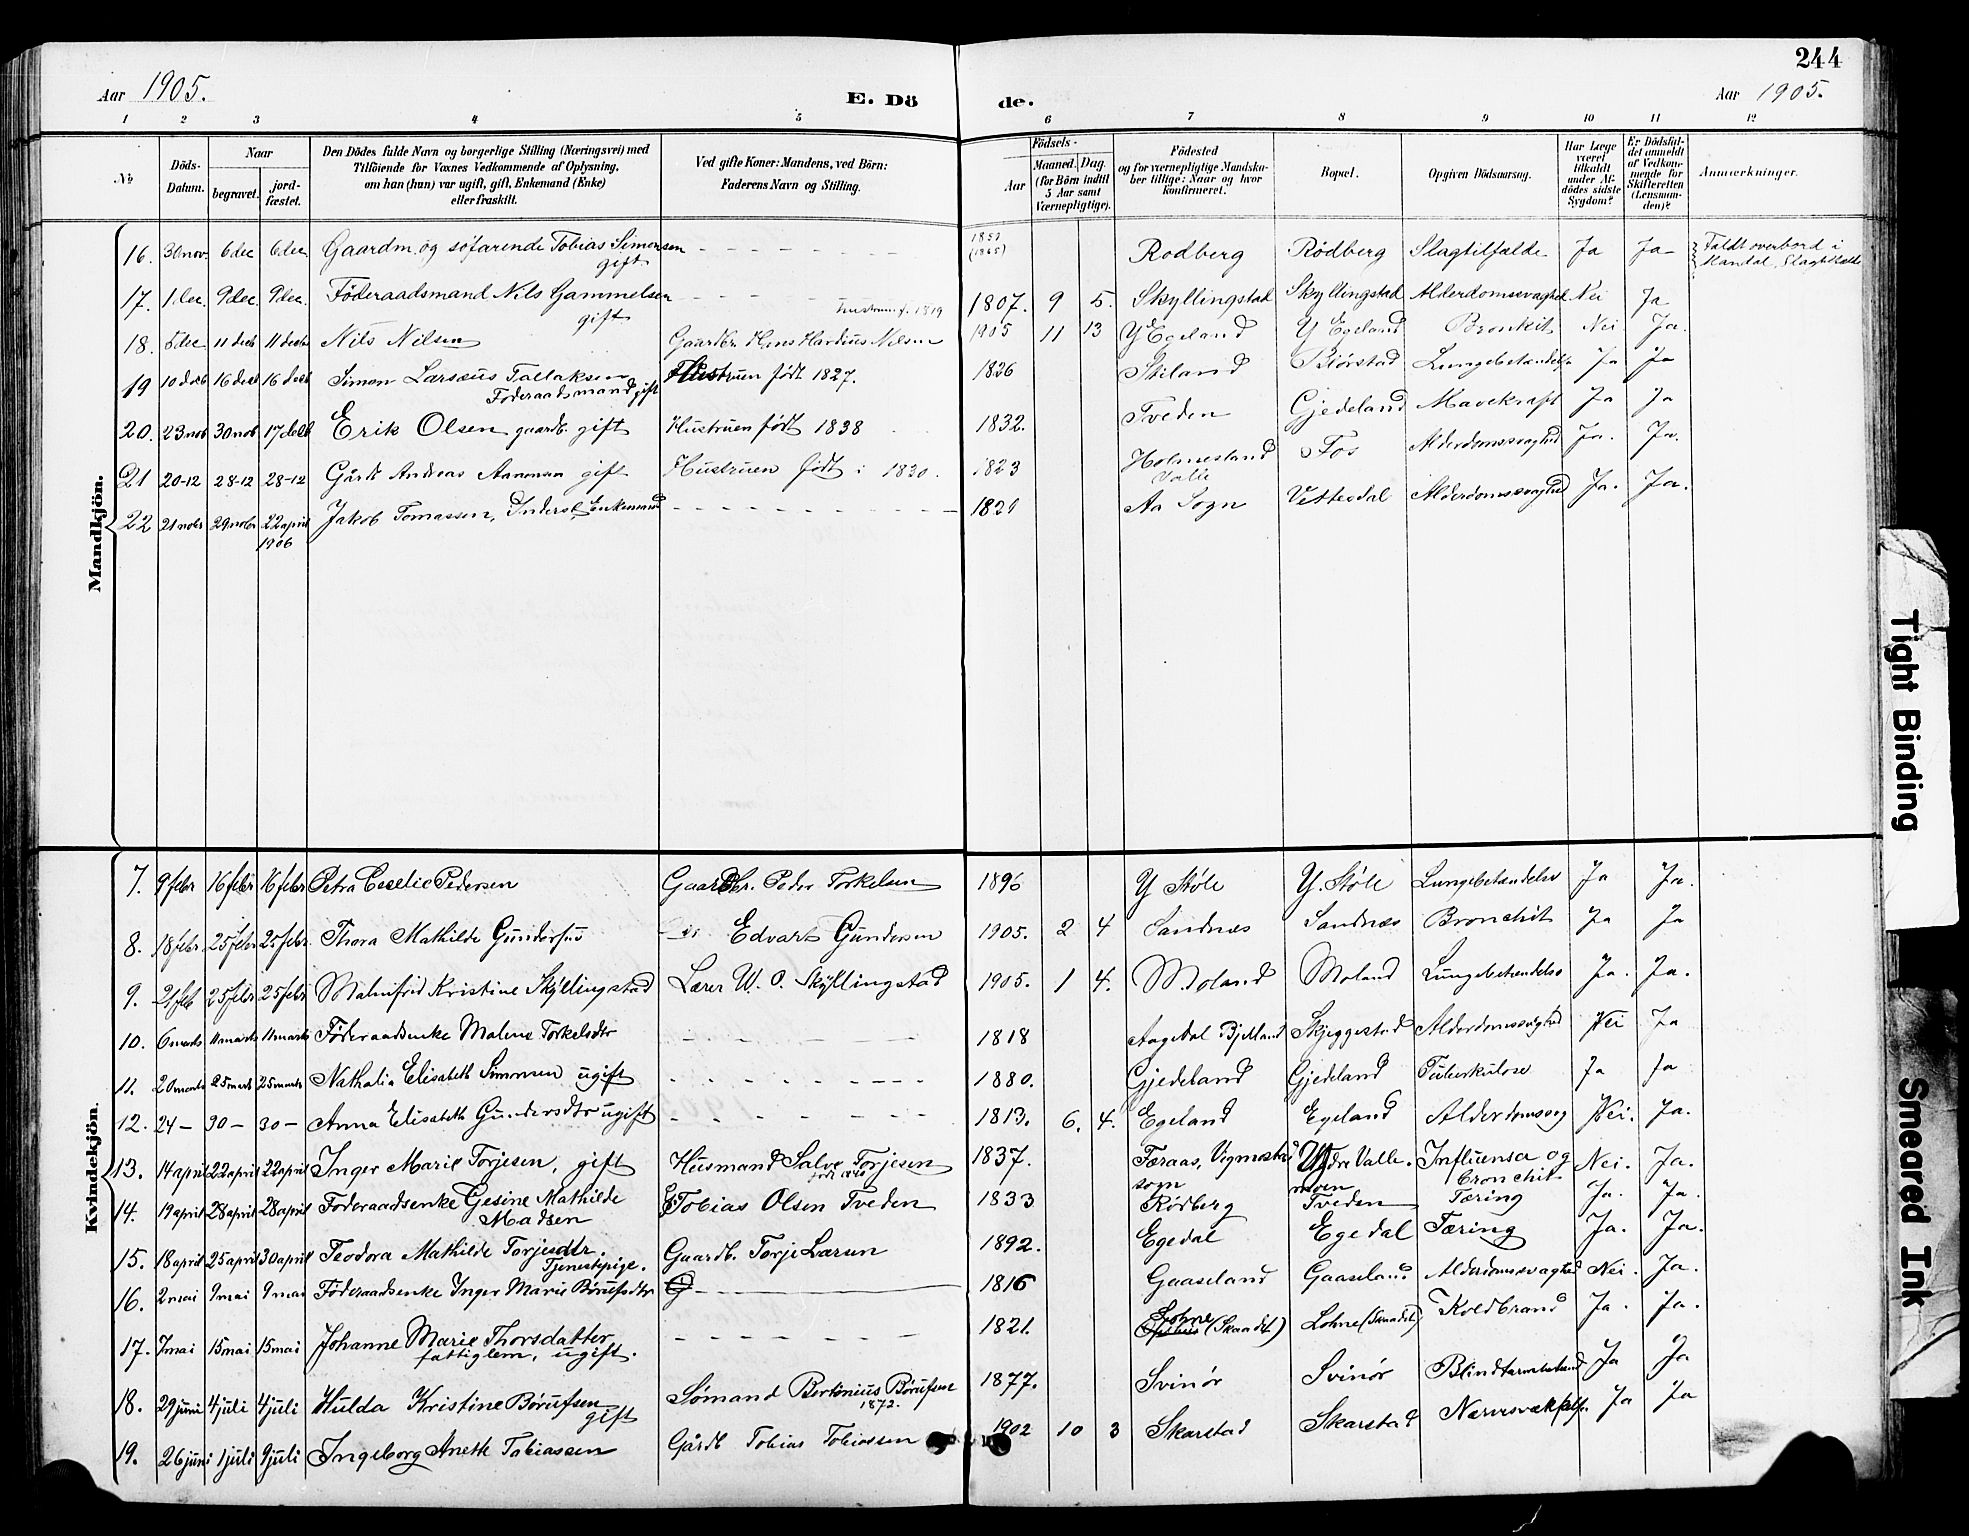 244
Aar 1905.
E. Döde.
Aar 1905.
1 2 3 4 5 6 7 8 9 10 11 12
№
Döds-Datum.
Naar
begravet.
jord-fæstet.
Den Dödes fulde Navn og borgerlige Stilling (Næringsvei) med
Tilföiende for Voxnes Vedkommende af Oplysning,
om han (hun) var ugift, gift, Enkemand (Enke)
eller fraskilt.
Ved gifte Koner: Mandens, ved Börn:
Faderens Navn og Stilling.
Födsels-
Aar
Maaned. Dag.
(for Börn indtil
5 Aar samt
Værnepligtige).
Födested
og for værnepligtige Mandska-
ber tillige: Naar og hvor
konfirmeret.
Bopæl.
Opgiven Dödsaarsag.
Har Læge
været
tilkaldt
under Af-
dödes sidste
Sygdom?
Er Dödsfal-
det anmeldt
af Vedkom-
mende for
Skifteretten
(Lensman-
den)?
Anmærkninger.
Mandkjön.
16. 30 nov. 6 dec 6 dec Gaardm. og søfarende Tobias Simonsen gift - - - (1865) Rodberg Rødberg Slagtilfælde Ja Ja Faldt overbord i Mandal, Slagtilfælde
17. 1 dec. 9 dec. 9 dec. Føderaadsmand Nils Gammelsen gift - - - hustruen f. 1819 1807. 9 5. Skyllingstad Skyllingstad Alderdomssvaghed Nei Ja
18. 5 dec 11 decb 11 decb Nils Nilsen Gaardbr. Hans Hardius Nilsen 1905 11 13 Y Egeland Y Egeland Bronkit Nei Ja.
19 10 decb 16 decb 16 decb Simon Larsæus Tallaksen Føderaadsmand gift Hustruen født 1827. 1826 Skiland Biørstad Lungebetændelse Ja Ja
20. 23 nob 30 nob 17 decb Erik Olsen gaardb. gift Hustruen født 1838 1832. Tveden Gjedeland Mavekraft Ja Ja
21 20-12 28-12 28-12 Gårdb Andreas Aanonsen gift Hustruen født i 1830. 1823 Holmesland Valle Fos Alderdomssvaghed Ja. Ja.
22 21 nobr 29 nobr 22 april 1906 Jakob Tomassen, Inderst, Enkemand - - - 1821 Aa Sogn Vettedal Alderdomssvaghed Ja. Ja.
Kvindekjön.
7. 9 febr 16 febr 16 febr Petra Cecelie Pedersen Gaardbr. Peder Torkelsen 1896 Y Støle Y. Støle Lungebetændelse Ja Ja.
8. 18 febr 25 febr 25 febr. Thora Mathilde Gundersen Edvart Gundersen 1905. 2 4 Sandnæs Sandnæs Bronchit Ja Ja
9. 21 feb 25 febr 25 febr Malmfrid Kristine Skyllingstad Lærer W. O. Skyllingstad 1905. 1 4. Moland Moland Lungebetændelse Ja. Ja.
10. 6 marts 11 marts 11 marts Føderaadsenke Malene Torkelsdtr - - - 1818 Aagedal Bjelland Skjeggestad Alderdomssvaghed Nei Ja
11. 20 marts 25 marts 25 marts Nathalia Elisabeth Simonsen ugift - - - 1880. Gjedeland Gjedeland Tuberkulose Ja Ja
12. 24 – 30 – 30 – Anna Elisabeth Gundersdtr ugift - - - 1813. 6. 4. Egeland Egeland Alderdomsvag Nei. Ja.
13. 14 april 22 april 22 april Inger Marie Torjesen, gift Husmand Salve Torjesen 1837. Færaas, Vigmostad sogn Ydre Valle. moen Influensa og bronchit Nei. Ja.
14. 19 april 28 april 28 april Føderaadsenke Gesine Mathilde Madsen Tobias Olsen Tveden 1833 Rødberg Tveden Tæring Ja. Ja.
15. 18 april 25 april 30 april Teodora Mathilde Torjesdtr. Tjenestepige. Gaardb. Torje Larsen 1892. Egedal Egedal Tæring Ja. Ja.
16. 2 mai 9 mai 9 mai Føderaadsenke Inger Marie Børufsdtr 1816 Gaaseland Gaaseland Alderdomssvaghed Nei. Ja.
17. 7 mai 15 mai 15 mai Johanne Marie Thorsdatter fattiglem, ugift. - - - 1821. Lohne (Skaadit) Lohne (Skaadit) Koldbrand Ja. Ja.
18. 29 juni 4 juli 4 juli Hulda Kristine Børufsen gift Sømand Bertinius Børufsen 1872. 1877. Svinør Svinør Blindtarmbetænd Ja Ja
19. 26 juni 1 juli 9 juli Ingeborg Anette Tobiassen Gårdb Tobias Tobiassen 1902 10 3 Skarstad Skarstad Ja Ja
Tight Binding
Smeared Ink